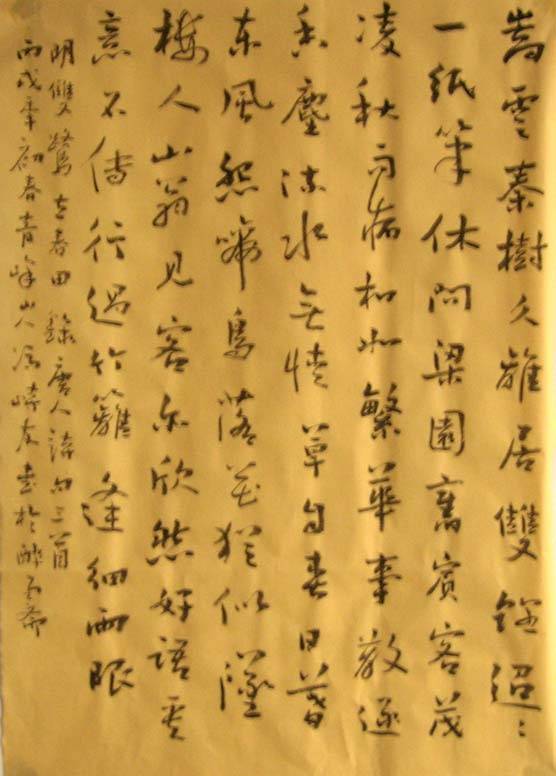 嵩雲秦樹久離居雙鯉迢々
一紙筆休問梁園舊賓客茂
凌秋雨病相如繁華事散逐
香塵流水無情草自春日暮
东風怨啼鳥落花猶似墜
樓人山翁見客亦欣然好語
意不傳行過竹籬逢細雨眼
明雙鷺立春田錄唐人詩句三首
丙戌年初春青峰山人馮友書於醉墨齋